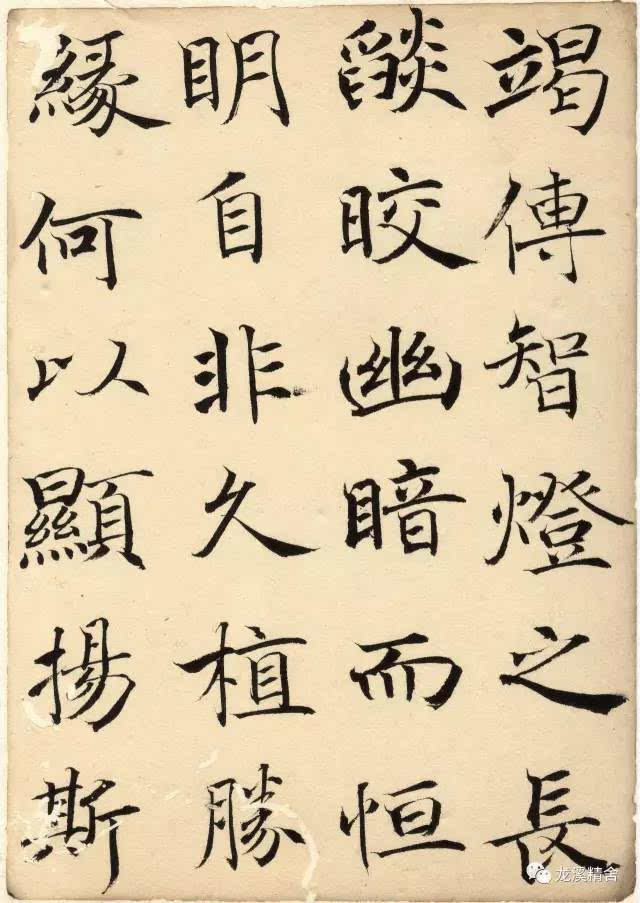 竭傳智燈之長
燄皎幽暗而恒
明自非久植勝
緣何以顯揚斯
龙溪精舍